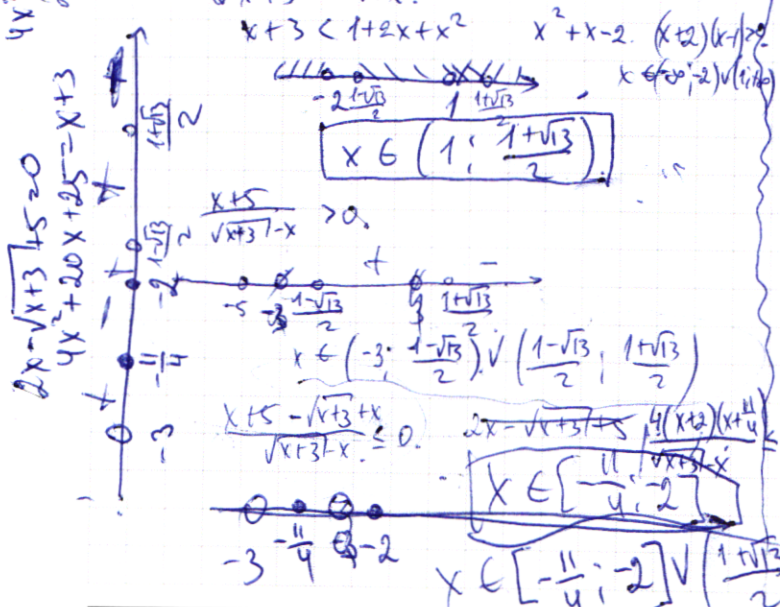 x+3 < 1+2x+x²
x²+x-2. (x+2)(x-1)>0
x ∈ (-∞; -2) ∨ (1; +∞)
-2 (1-√13)/2 1 (1+√13)/2
x ∈ (1; (1+√13)/2)
(x+5)/(√(x+3)-x) > 0.
+ -
-5 -3 (1-√13)/2 (1+√13)/2
x ∈ (-3; (1-√13)/2) ∨ ((1-√13)/2; (1+√13)/2)
(x+5-√(x+3)+x)/(√(x+3)-x) ≤ 0.
2x-√(x+3)+5
4(x+2)(x+11/4)/(√(x+3)-x) ≤
x ∈ [-11/4; -2]
-3 -11/4 -2
x ∈ [-11/4; -2] ∨ ((1+√13)/2
2x-√(x+3)+5=0
4x²+20x+25=x+3
-3 -11/4 -2 (1-√13)/2 (1+√13)/2
+ - + +
4x²